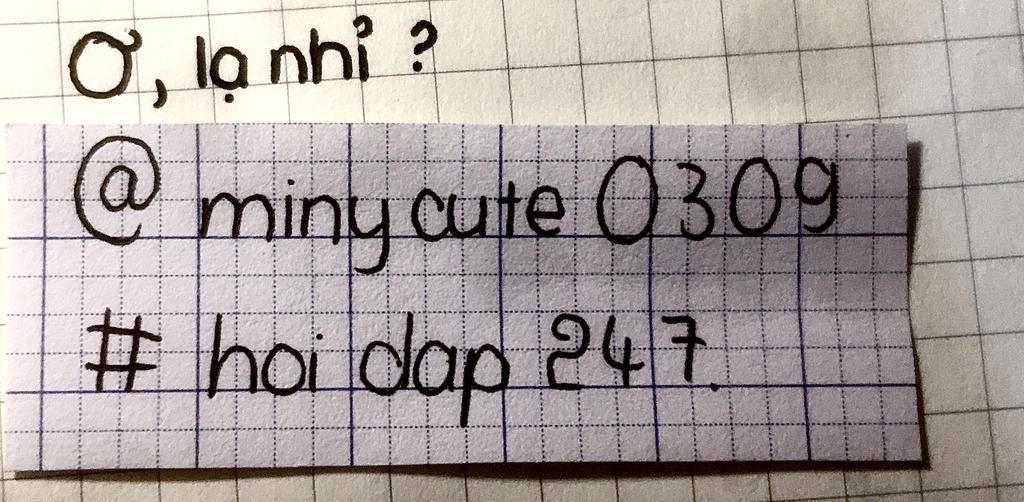 Ơ, lạ nhỉ ?
@ minycute 0309
# hoi dap 247.